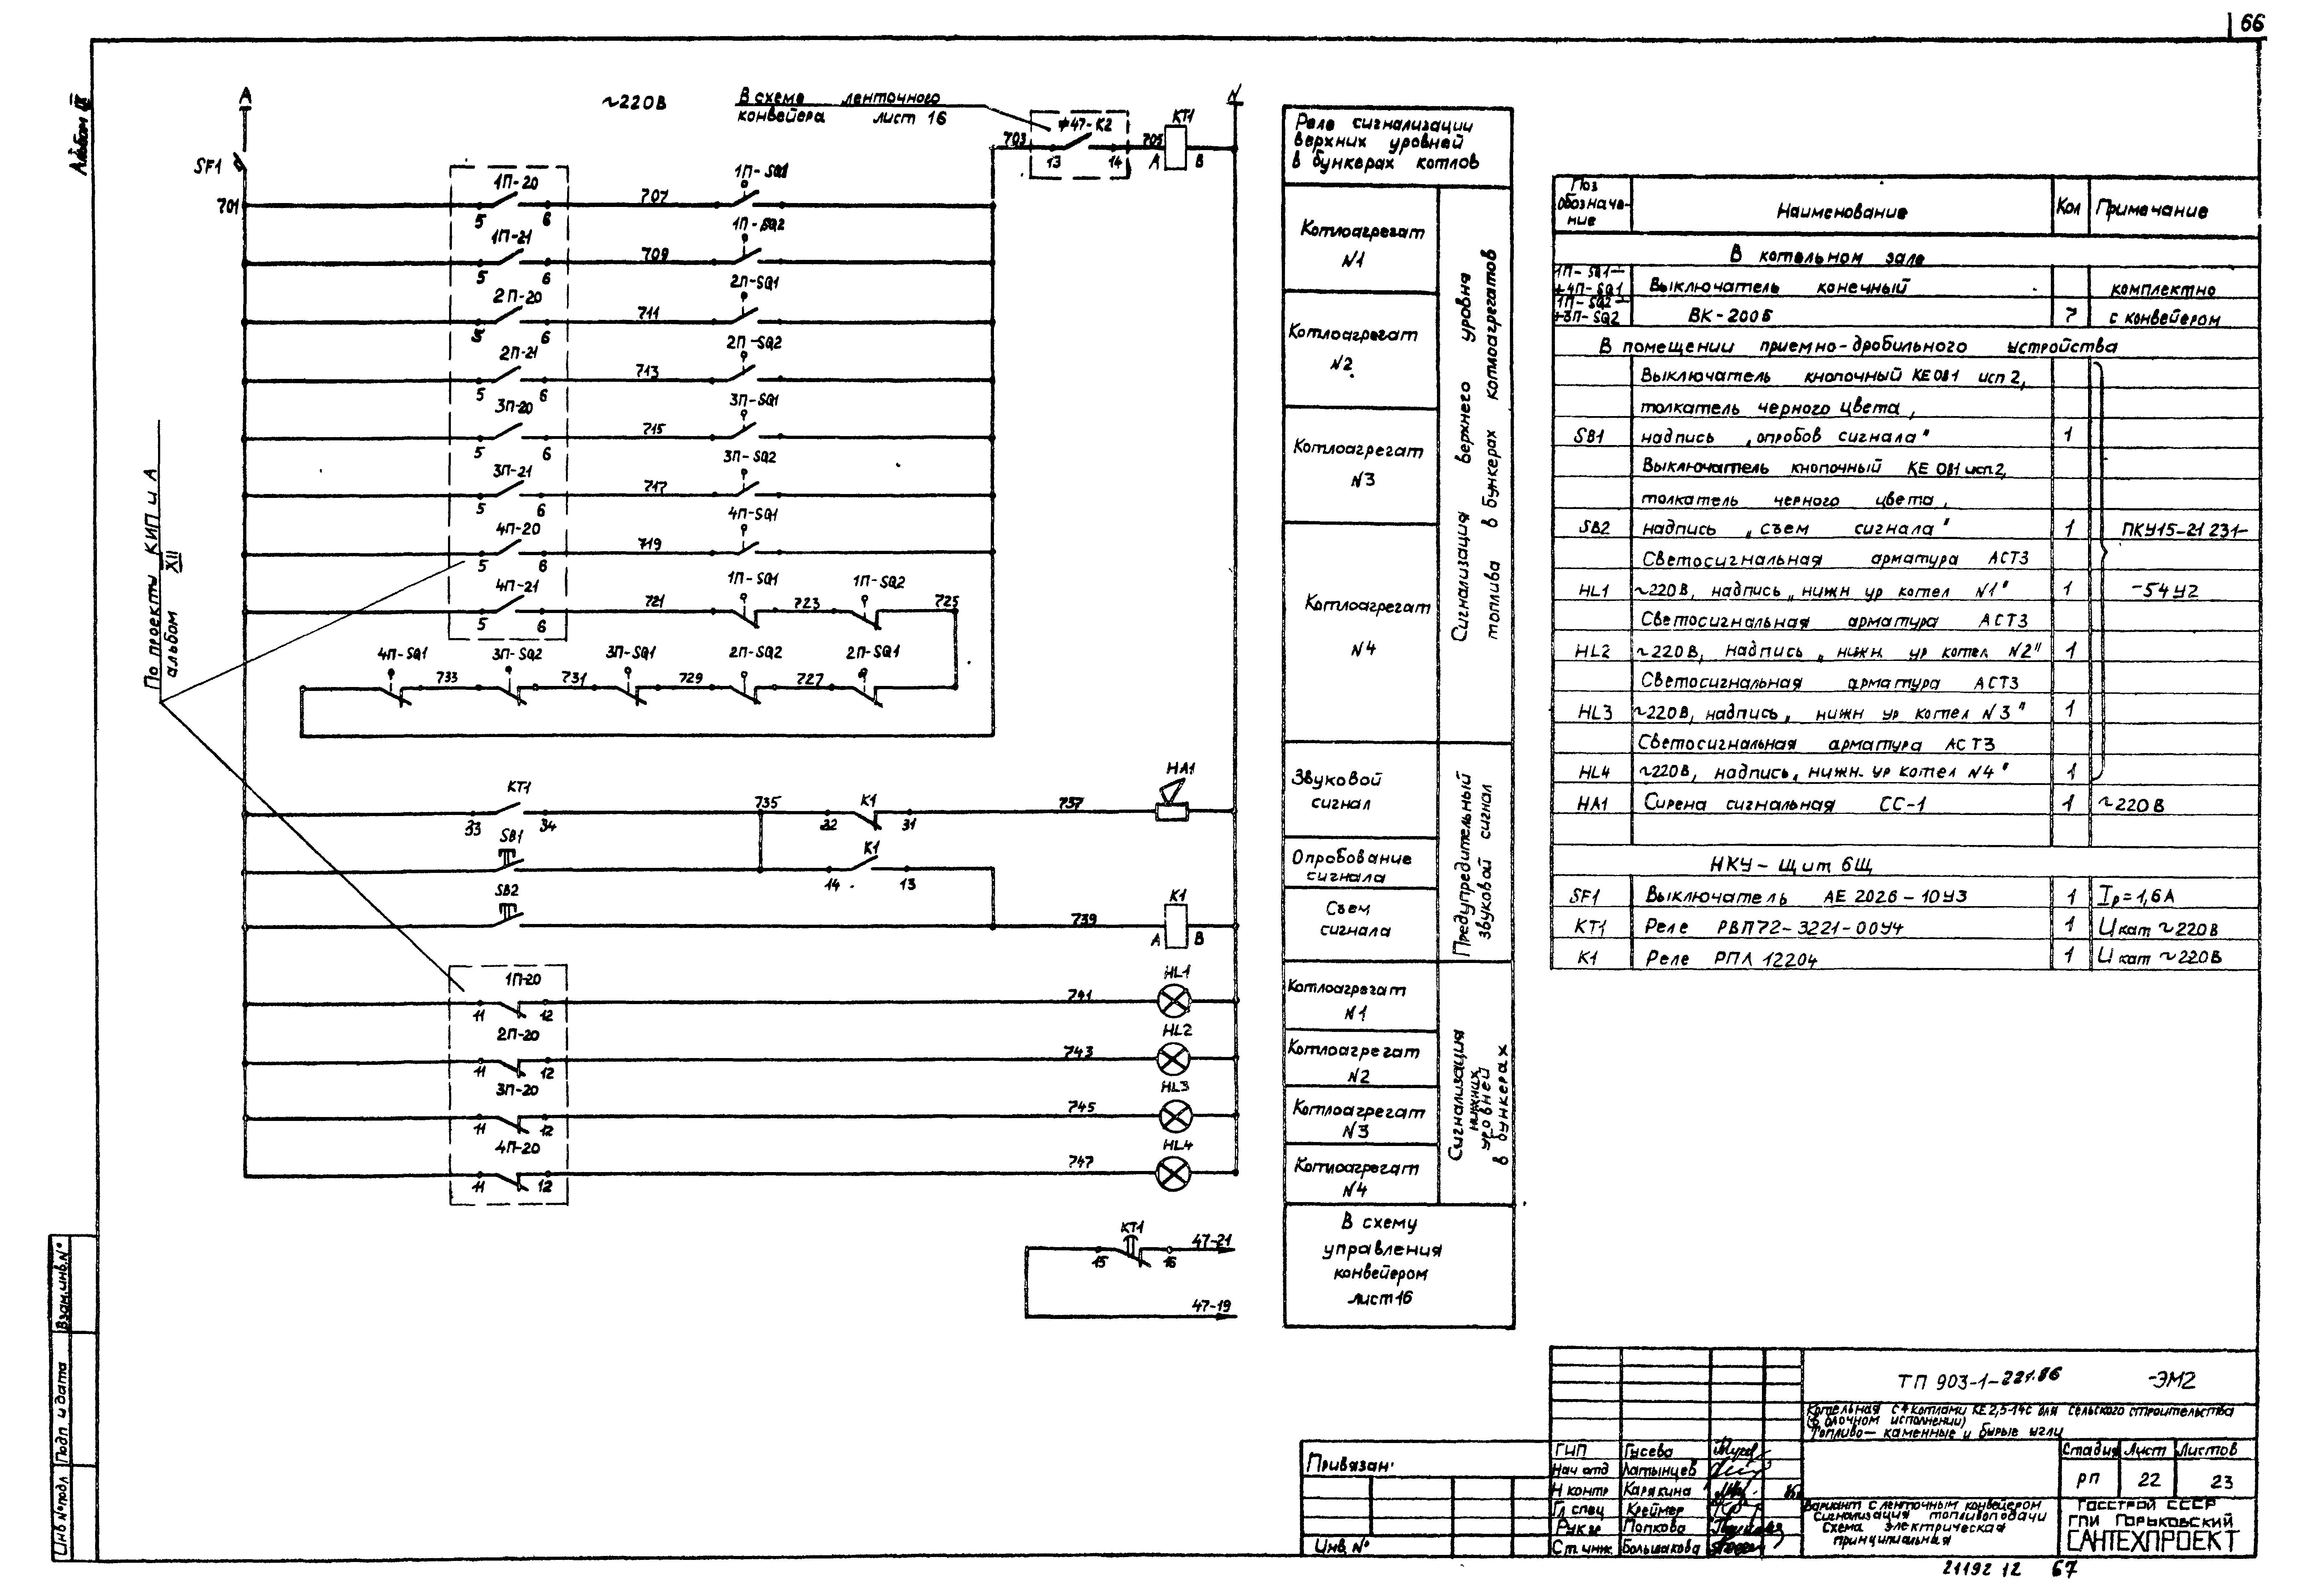 66
Альбом IX
А
~220В
В схеме ленточного
конвейера лист 16
47-К2
703
13
14
705
КТ1
А
В
N
SF1
701
1П-20
5
6
707
1П-SQ1
1П-21
5
6
709
1П-SQ2
2П-20
5
6
711
2П-SQ1
2П-21
5
6
713
2П-SQ2
3П-20
5
6
715
3П-SQ1
3П-21
5
6
717
3П-SQ2
4П-20
5
6
719
4П-SQ1
4П-21
5
6
721
1П-SQ1
723
1П-SQ2
725
4П-SQ1
733
3П-SQ2
731
3П-SQ1
729
2П-SQ2
727
2П-SQ1
По проекту КИП и А
альбом XII
КТ1
33
34
735
К1
32
31
737
НА1
SB1
К1
14
13
SB2
739
К1
А
В
1П-20
11
12
741
HL1
2П-20
11
12
743
HL2
3П-20
11
12
745
HL3
4П-20
11
12
747
HL4
КТ1
15
16
47-21
47-19
Реле сигнализации
верхних уровней
в бункерах котлов
Котлоагрегат
N1
Котлоагрегат
N2
Котлоагрегат
N3
Котлоагрегат
N4
Сигнализация верхнего уровня
топлива в бункерах котлоагрегатов
Звуковой
сигнал
Опробование
сигнала
Съем
сигнала
Предупредительный
звуковой сигнал
Котлоагрегат
N1
Котлоагрегат
N2
Котлоагрегат
N3
Котлоагрегат
N4
Сигнализация
нижних
уровней
в бункерах
В схему
управления
конвейером
лист 16
Поз обозначе-ние Наименование Кол Примечание
В котельном зале
1П-SQ1÷
÷4П-SQ1 Выключатель конечный комплектно
1П-SQ2÷
÷3П-SQ2 ВК-200Б 7 с конвейером
В помещении приемно-дробильного устройства
Выключатель кнопочный КЕ 081 исп 2,
толкатель черного цвета,
SB1 надпись „опробов сигнала" 1
Выключатель кнопочный КЕ 081 исп.2,
толкатель черного цвета,
SB2 надпись „съем сигнала" 1 ПКУ15-21 231-
Светосигнальная арматура АСТ3
HL1 ~220В, надпись „нижн ур котел N1" 1 -54У2
Светосигнальная арматура АСТ3
HL2 ~220В, надпись „нижн. ур котел N2" 1
Светосигнальная арматура АСТ3
HL3 ~220В, надпись „нижн ур котел N3" 1
Светосигнальная арматура АСТ3
HL4 ~220В, надпись „нижн. ур котел N4" 1
НА1 Сирена сигнальная СС-1 1 ~220В
НКУ-щит 6Щ
SF1 Выключатель АЕ 2026-10У3 1 Iр=1,6А
КТ1 Реле РВП72-3221-00У4 1 Uкат ~220В
К1 Реле РПЛ 12204 1 Uкат ~220В
Взам.инв.N°
Подп и дата
Инв N°подл
Привязан:
Инв N°
ГИП Гусева
Нач отд Латынцев
Н контр Карякина
Гл спец Креймер
Рук гр Попкова
Ст. инж. Большакова
ТП 903-1-221.86 -ЭМ2
Котельная с 4 котлами КЕ 2,5-14С для сельского строительства
(в блочном исполнении)
Топливо-каменные и бурые угли
Стадия Лист Листов
РП 22 23
Вариант с ленточным конвейером
Сигнализация топливоподачи
Схема электрическая
принципиальная
Госстрой СССР
ГПИ Горьковский
САНТЕХПРОЕКТ
21192 12 67